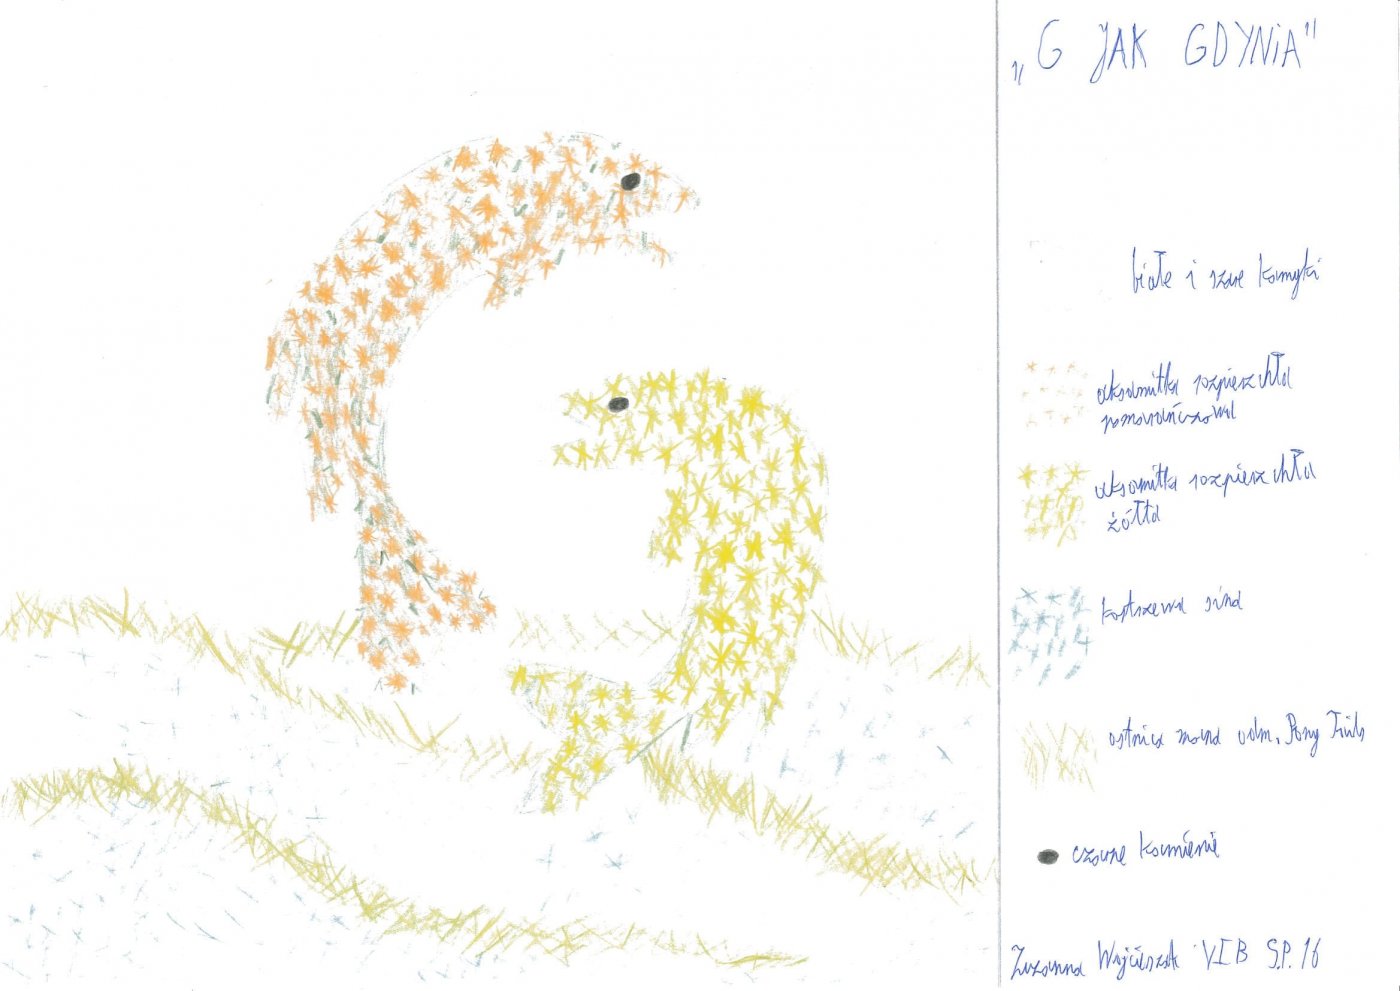 „G JAK GDYNIA"
białe i szare kamyki
aksamitka rozpierzchła
pomarańczowa
aksamitka rozpierzchła
żółta
kostrzewa sina
ostnica mocna odm. Pony Tails
czarne kamienie
Zuzanna VI B S.P. 16